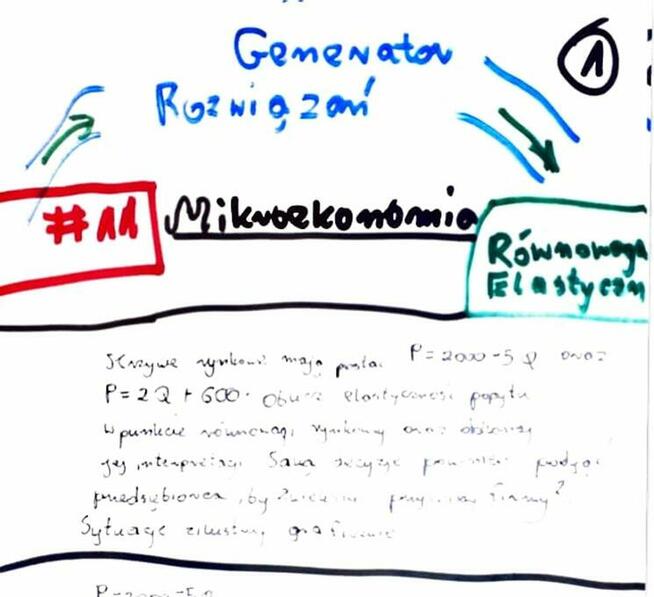 Generator
Rozwiązań
1
#11
Mikroekonomia
Równowaga
Elastyczn
Krzywe rynkowe mają postać P=2000-5Q oraz
P=2Q+600. Oblicz elastyczność popytu
w punkcie równowagi rynkowej oraz
jej interpretacji. Jaką decyzję podjąć
przedsiębiorca, by firmy?
Sytuację zilustruj graficznie
P=2000-5Q